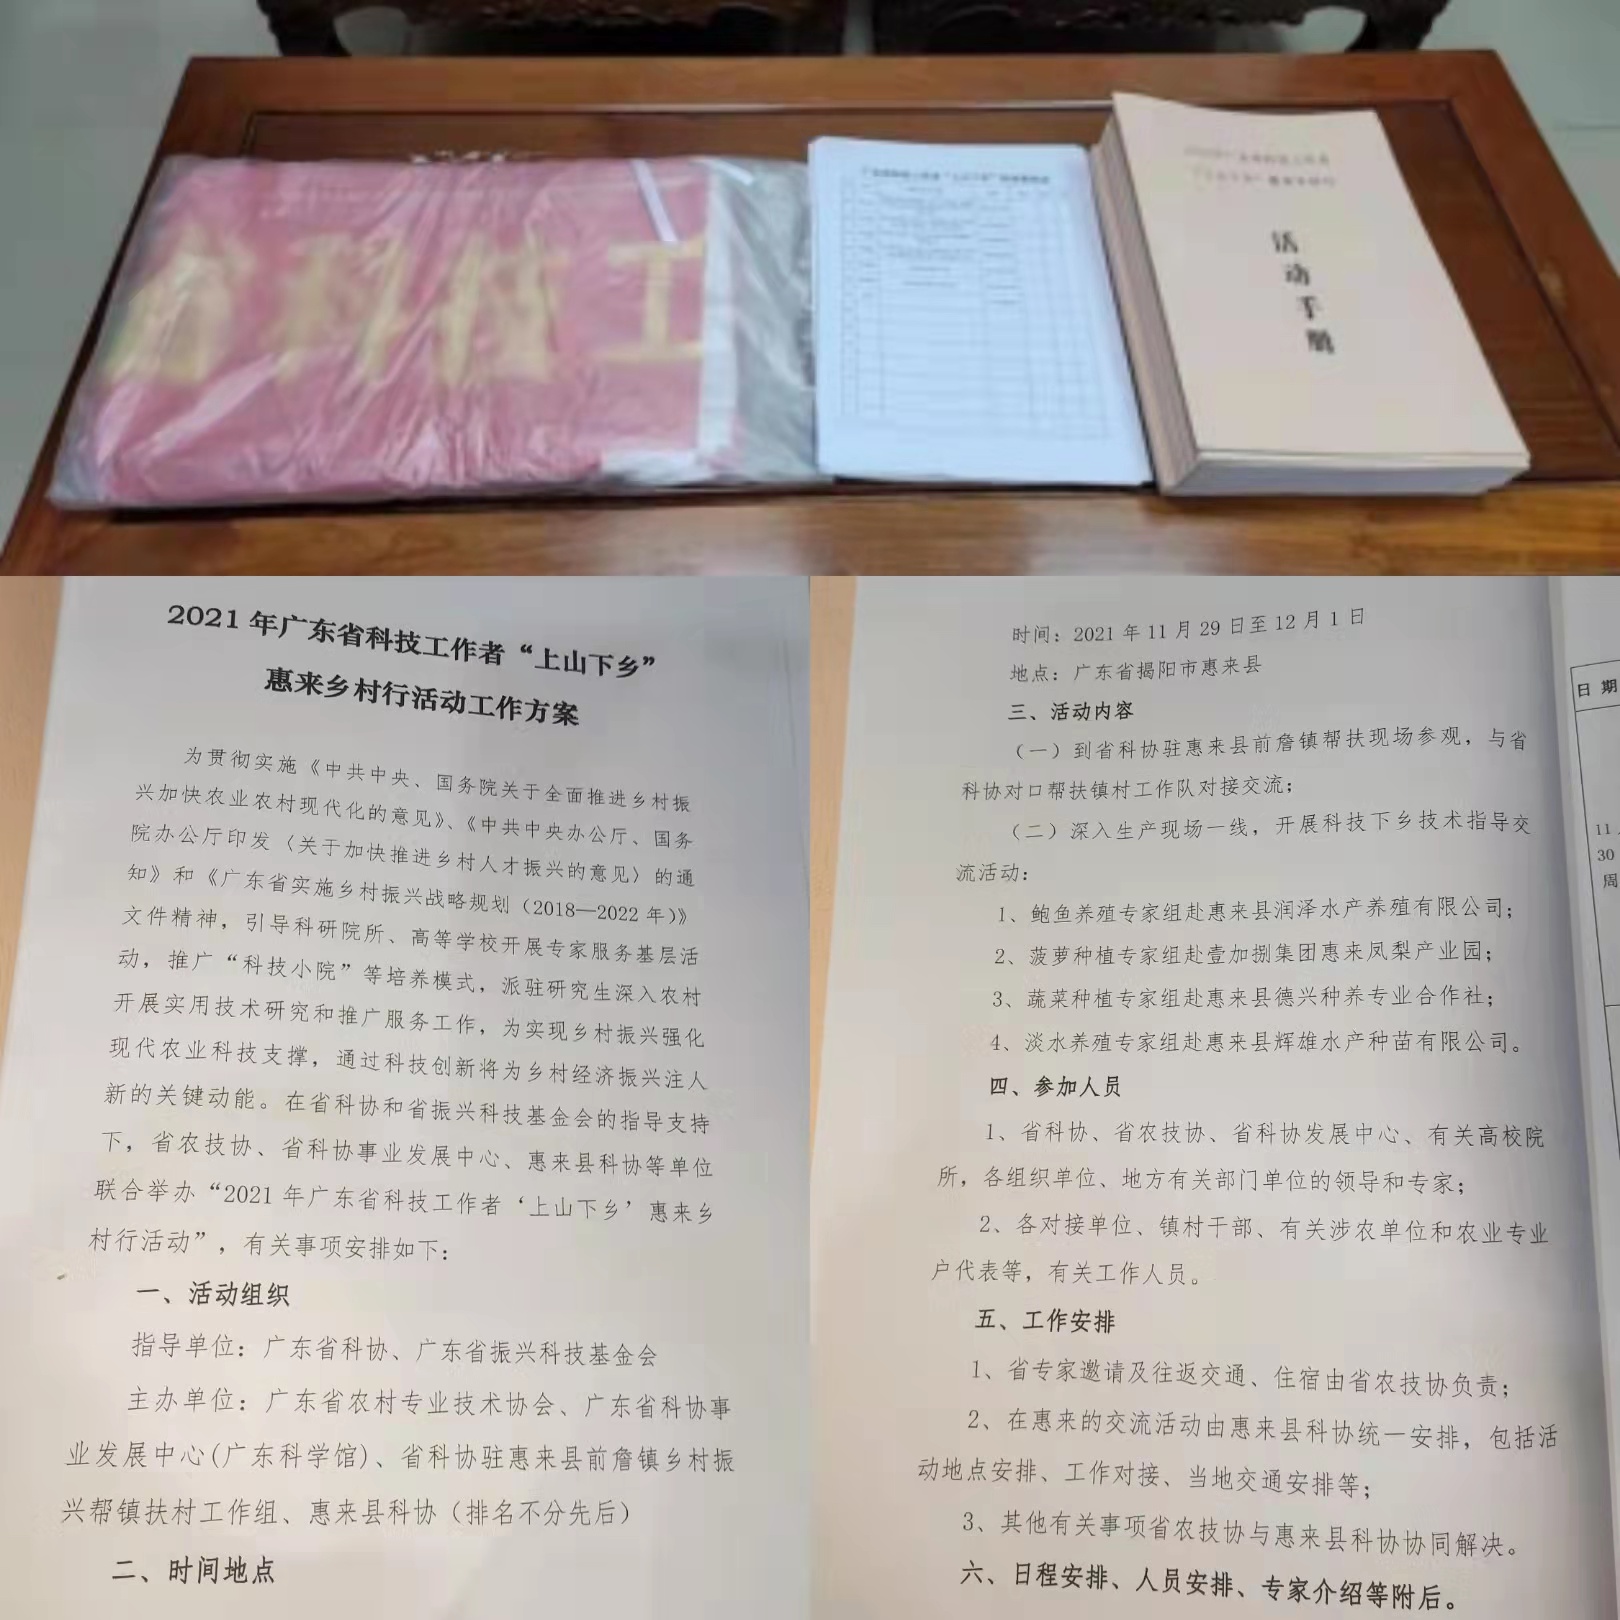 省科技工
活动手册
2021年广东省科技工作者“上山下乡”
惠来乡村行活动工作方案
为贯彻实施《中共中央、国务院关于全面推进乡村振
兴加快农业农村现代化的意见》、《中共中央办公厅、国务
院办公厅印发〈关于加快推进乡村人才振兴的意见〉的通
知》和《广东省实施乡村振兴战略规划（2018—2022年）》
文件精神，引导科研院所、高等学校开展专家服务基层活
动，推广“科技小院”等培养模式，派驻研究生深入农村
开展实用技术研究和推广服务工作，为实现乡村振兴强化
现代农业科技支撑，通过科技创新将为乡村经济振兴注入
新的关键动能。在省科协和省振兴科技基金会的指导支持
下，省农技协、省科协事业发展中心、惠来县科协等单位
联合举办“2021年广东省科技工作者‘上山下乡’惠来乡
村行活动”，有关事项安排如下：
一、活动组织
指导单位：广东省科协、广东省振兴科技基金会
主办单位：广东省农村专业技术协会、广东省科协事
业发展中心(广东科学馆)、省科协驻惠来县前詹镇乡村振
兴帮镇扶村工作组、惠来县科协（排名不分先后）
二、时间地点
时间：2021年11月29日至12月1日
地点：广东省揭阳市惠来县
三、活动内容
（一）到省科协驻惠来县前詹镇帮扶现场参观，与省
科协对口帮扶镇村工作队对接交流；
（二）深入生产现场一线，开展科技下乡技术指导交
流活动：
1、鲍鱼养殖专家组赴惠来县润泽水产养殖有限公司；
2、菠萝种植专家组赴壹加捌集团惠来凤梨产业园；
3、蔬菜种植专家组赴惠来县德兴种养专业合作社；
4、淡水养殖专家组赴惠来县辉雄水产种苗有限公司。
四、参加人员
1、省科协、省农技协、省科协发展中心、有关高校院
所，各组织单位、地方有关部门单位的领导和专家；
2、各对接单位、镇村干部、有关涉农单位和农业专业
户代表等，有关工作人员。
五、工作安排
1、省专家邀请及往返交通、住宿由省农技协负责；
2、在惠来的交流活动由惠来县科协统一安排，包括活
动地点安排、工作对接、当地交通安排等；
3、其他有关事项省农技协与惠来县科协协同解决。
六、日程安排、人员安排、专家介绍等附后。
日期
11
30
周